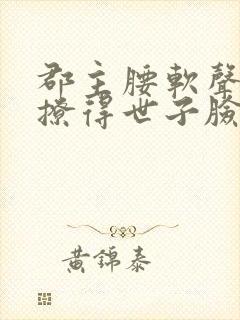 郡主腰軟聲
撩得世子臉
黃錦泰